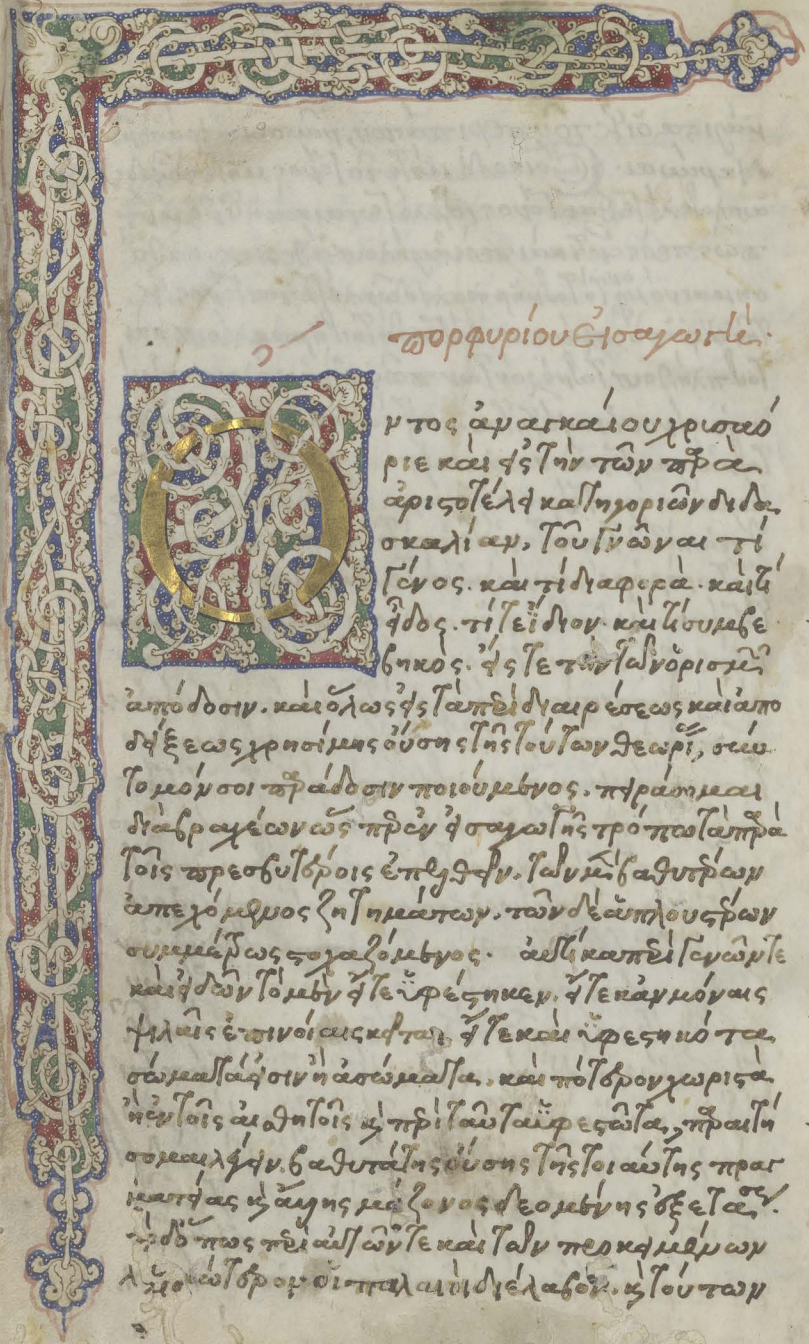 πορφυρίου εἰσαγωγή.
Ὄντος ἀναγκαίου χρισαό
ριε καὶ εἰς τὴν τῶν παρὰ
ἀριστοτέλει κατηγοριῶν διδα
σκαλίαν, τοῦ γνῶναι τί
γένος. καὶ τί διαφορὰ. καὶ τί
εἶδος. τί τε ἴδιον. καὶ τί συμβε
βηκός. εἴς τε τὴν τῶν ὁρισμῶν
ἀπόδοσιν. καὶ ὅλως εἰς τὰ περὶ διαιρέσεως καὶ ἀπο
δείξεως χρησίμης οὔσης τῆς τούτων θεωρίας, σύν
τομόν σοι παράδοσιν ποιούμενος. πειράσομαι
διὰ βραχέων ὡς περ ἐν εἰσαγωγῆς τρόπω τὰ παρὰ
τοῖς πρεσβυτέροις ἐπελθεῖν. τῶν μὲν βαθυτέρων
ἀπεχόμενος ζητημάτων. τῶν δὲ ἁπλουστέρων
συμμέτρως στοχαζόμενος. αὐτίκα περὶ γενῶν τε
καὶ εἰδῶν τὸ μὲν εἴτε ὑφέστηκεν. εἴτε κἀν μόναις
ψιλαῖς ἐπινοίαις κεῖται, εἴτε καὶ ὑφεστηκότα
σώματά εἰσιν ἢ ἀσώματα. καὶ πότερον χωριστὰ
ἢ ἐν τοῖς αἰσθητοῖς καὶ περὶ ταῦτα ὑφεστῶτα, παραιτή
σομαι λέγειν. βαθυτάτης οὔσης τῆς τοιαύτης πραγ
ματείας καὶ ἄλλης μείζονος δεομένης ἐξετάσεως.
τὸ δ' ὅπως περὶ αὐτῶν τε καὶ τῶν προκειμένων
λογικώτερον οἱ παλαιοὶ διέλαβον. καὶ τούτων